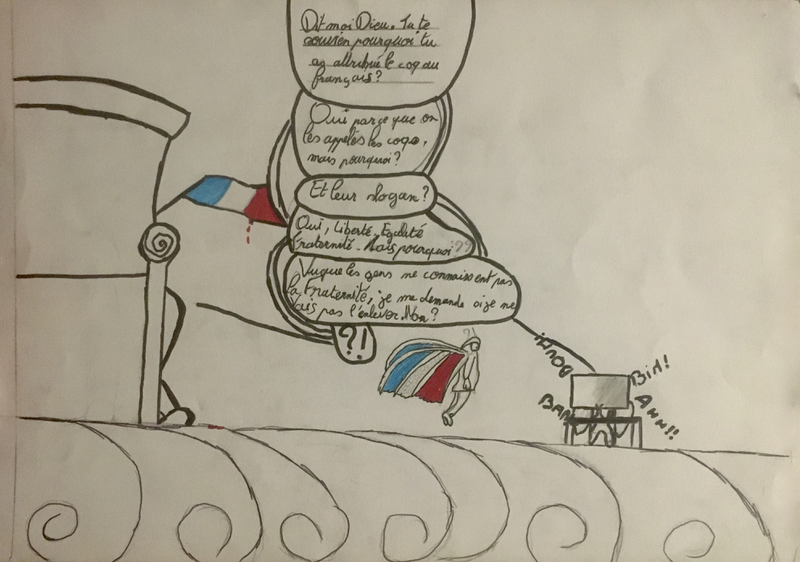 Dit moi Dieu. Tu te
souvien pourquoi tu
as attribué le coq au
français?
Oui parçe que on
les appelés les coqs,
mais pourquoi?
Et leur slogan?
Oui, Liberté. Egalité
Fraternité. Mais pourquoi???
Vuque les gens ne connaissent pas
la Fraternité, je me demande si je ne
vais pas l'enlever. Non?
?!
?
BOUM!
BIM!
BAM
AWW!!